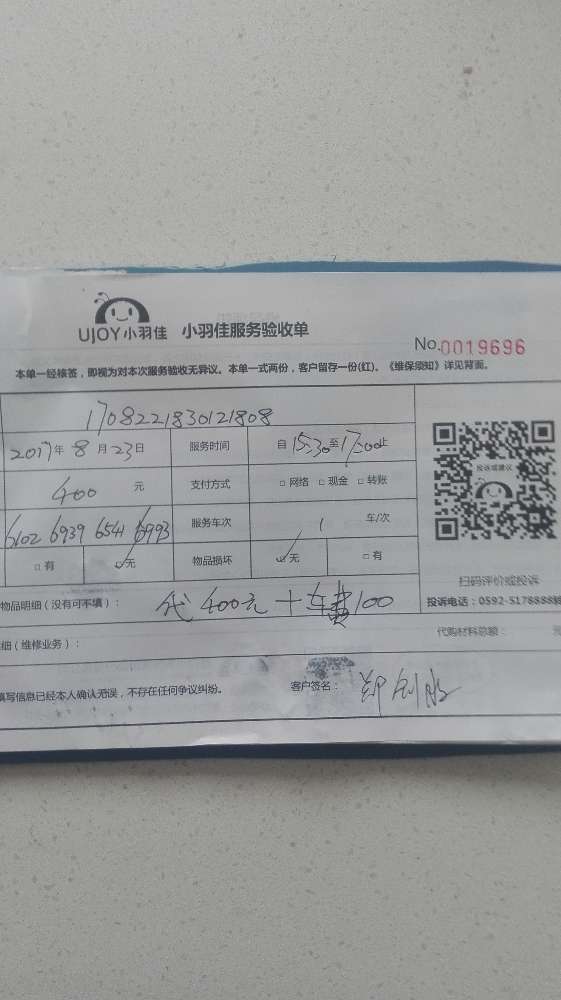 UJOY小羽佳 小羽佳服务验收单
No.0019696
本单一经核签，即视为对本次服务验收无异议。本单一式两份，客户留存一份(红)。《维保须知》详见背面。
170822183012180８
2017年 8月 23日 服务时间 自 15:30至17:00止
400 元 支付方式 □网络 □现金 □转账
6102 6939 6541 6993 服务车次 1 车/次
□有 ☑无 物品损坏 ☑无 □有
投诉或建议
扫码评价或投诉
物品明细（没有可不填）： 代400元+车费100
投诉电话：0592-5178888转
细（维修业务）： 代购材料总额： 元
填写信息已经本人确认无误，不存在任何争议纠纷。 客户签名：